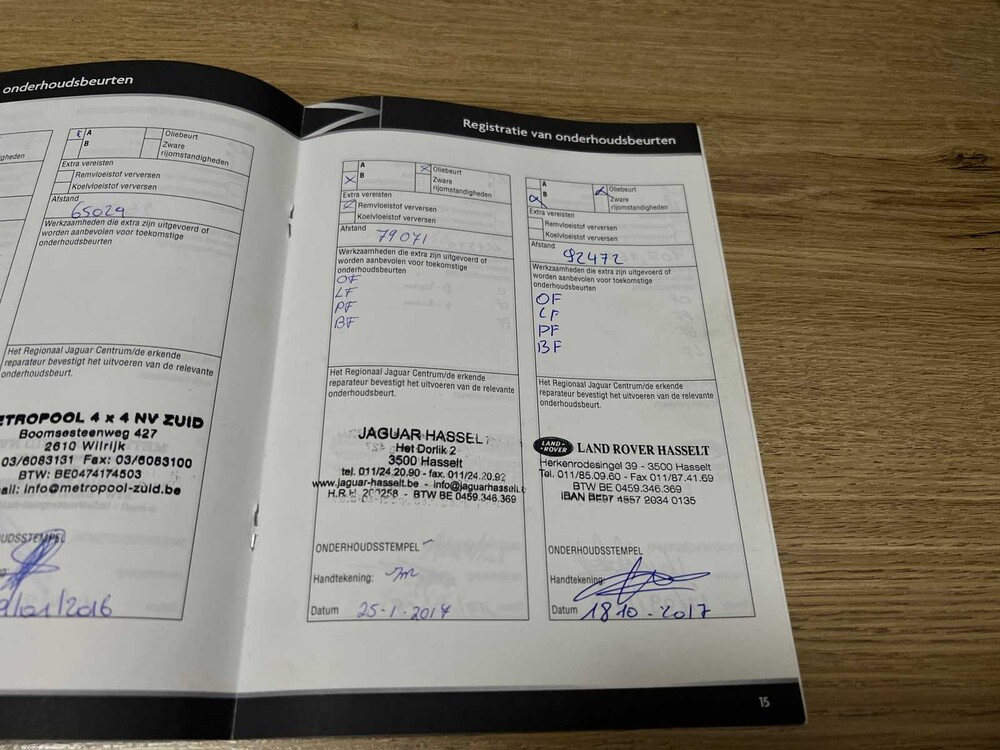 onderhoudsbeurten
A
B
Oliebeurt
Zware
rijomstandigheden
Extra vereisten
Remvloeistof verversen
Koelvloeistof verversen
Afstand
65029
Werkzaamheden die extra zijn uitgevoerd of
worden aanbevolen voor toekomstige
onderhoudsbeurten
Het Regionaal Jaguar Centrum/de erkende
reparateur bevestigt het uitvoeren van de relevante
onderhoudsbeurt.
ETROPOOL 4 x 4 NV ZUID
Boomsesteenweg 427
2610 Wilrijk
03/6083131 Fax: 03/6083100
BTW: BE0474174503
ail: info@metropool-zuid.be
OUDSSTEMPEL
/01/2016
Registratie van onderhoudsbeurten
A
B
Oliebeurt
Zware
rijomstandigheden
Extra vereisten
Remvloeistof verversen
Koelvloeistof verversen
Afstand
79071
Werkzaamheden die extra zijn uitgevoerd of
worden aanbevolen voor toekomstige
onderhoudsbeurten
OF
LF
PF
BF
Het Regionaal Jaguar Centrum/de erkende
reparateur bevestigt het uitvoeren van de relevante
onderhoudsbeurt.
JAGUAR HASSEL
Het Dorlik 2
3500 Hasselt
tel. 011/24.20.90 - fax. 011/24.20.92
www.jaguar-hasselt.be - info@jaguarhasselt
H.R.H. 200258 - BTW BE 0459.346.369
ONDERHOUDSSTEMPEL
Handtekening:
Datum 25-1-2017
A
B
Oliebeurt
Zware
rijomstandigheden
Extra vereisten
Remvloeistof verversen
Koelvloeistof verversen
Afstand
92472
Werkzaamheden die extra zijn uitgevoerd of
worden aanbevolen voor toekomstige
onderhoudsbeurten
OF
LF
PF
BF
Het Regionaal Jaguar Centrum/de erkende
reparateur bevestigt het uitvoeren van de relevante
onderhoudsbeurt.
LAND-ROVER LAND ROVER HASSELT
Herkenrodesingel 39 - 3500 Hasselt
Tel. 011/85.09.60 - Fax 011/87.41.69
BTW BE 0459.346.369
IBAN BE97 4557 2034 0135
ONDERHOUDSSTEMPEL
Handtekening:
Datum 18 10 - 2017
15